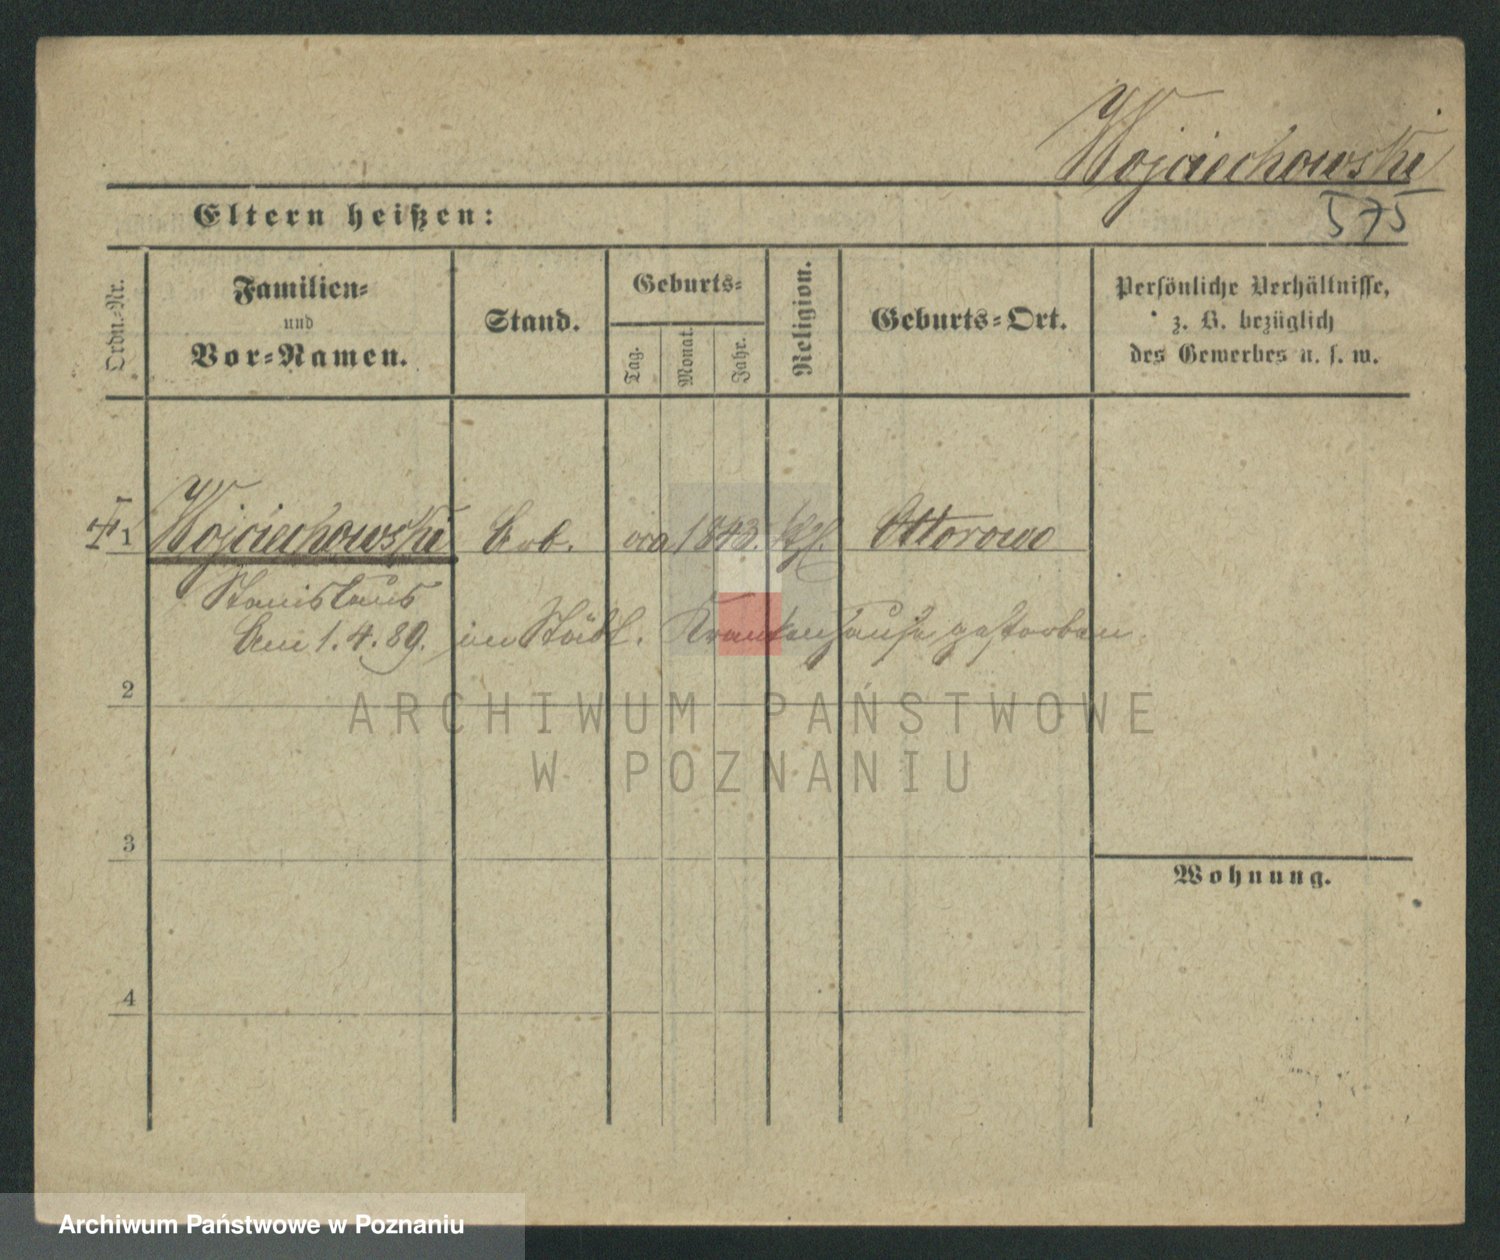 Wojciechowski
575
Eltern heißen:
Ordn.-Nr.
Familien-
und
Vor-Namen.
Stand.
Geburts-
Tag.
Monat.
Jahr.
Religion.
Geburts-Ort.
Persönliche Verhältnisse,
z. B. bezüglich
des Gewerbes u. s. w.
1 Wojciechowski Arb. 1843. kth. Ottorowo
Stanislaus
Am 1.4.89. im Städt. Krankenhause gestorben.
2
3
4
Wohnung.
ARCHIWUM PAŃSTWOWE
W POZNANIU
Archiwum Państwowe w Poznaniu